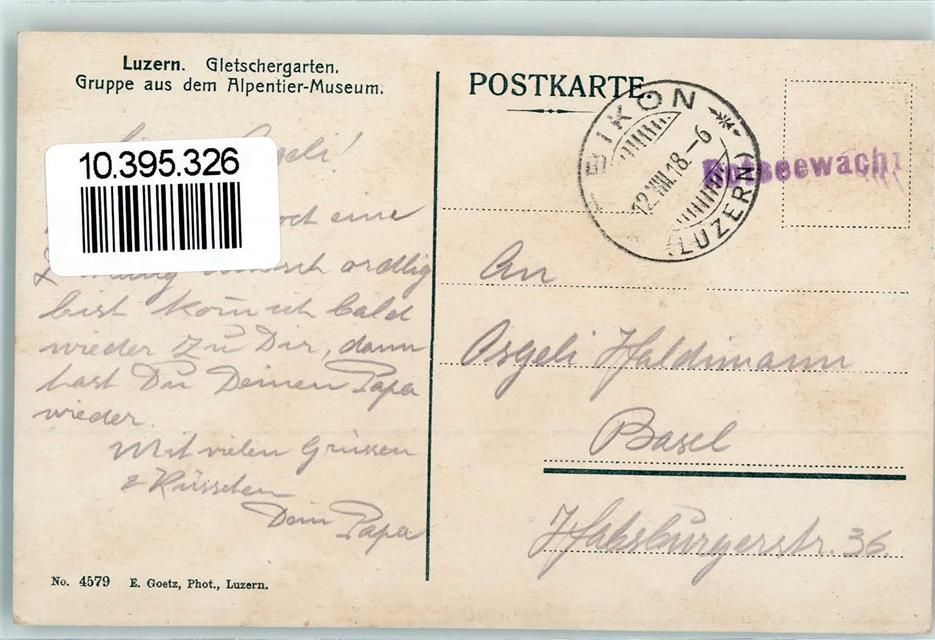 Luzern. Gletschergarten.
Gruppe aus dem Alpentier-Museum.
10.395.326
och eine
ordlig
bist kom ich bald
wieder zu Dir, dann
hast Du Deinen Papa
wieder.
Mit vielen Grüssen
& Küsschen
Dein Papa
No. 4579 E. Goetz, Phot., Luzern.
POSTKARTE.
EBIKON
12.VIII.18.-6
(LUZERN)
Rotseewacht
An
Osgeli Haldimann
Basel
Habsburgerstr. 36